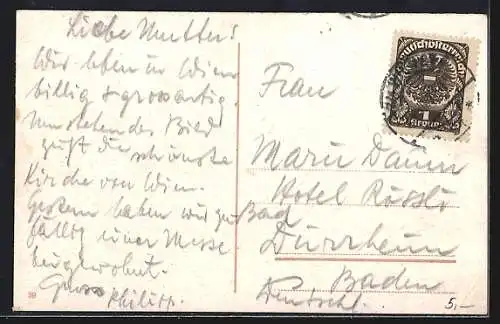 Liebe Mutter!
Wir leben in Wien
billig & grossartig.
Umstehendes Bild
zeigt die schönste
Kirche von Wien.
Gestern haben wir zu-
fällig einer Messe
beigewohnt.
Gruss
Philipp.
Frau
Marie Daum
Hotel Rössle
Bad
Dürrheim
Baden
Deutschl.
Deutschösterreich
1
Krone
39
5,-